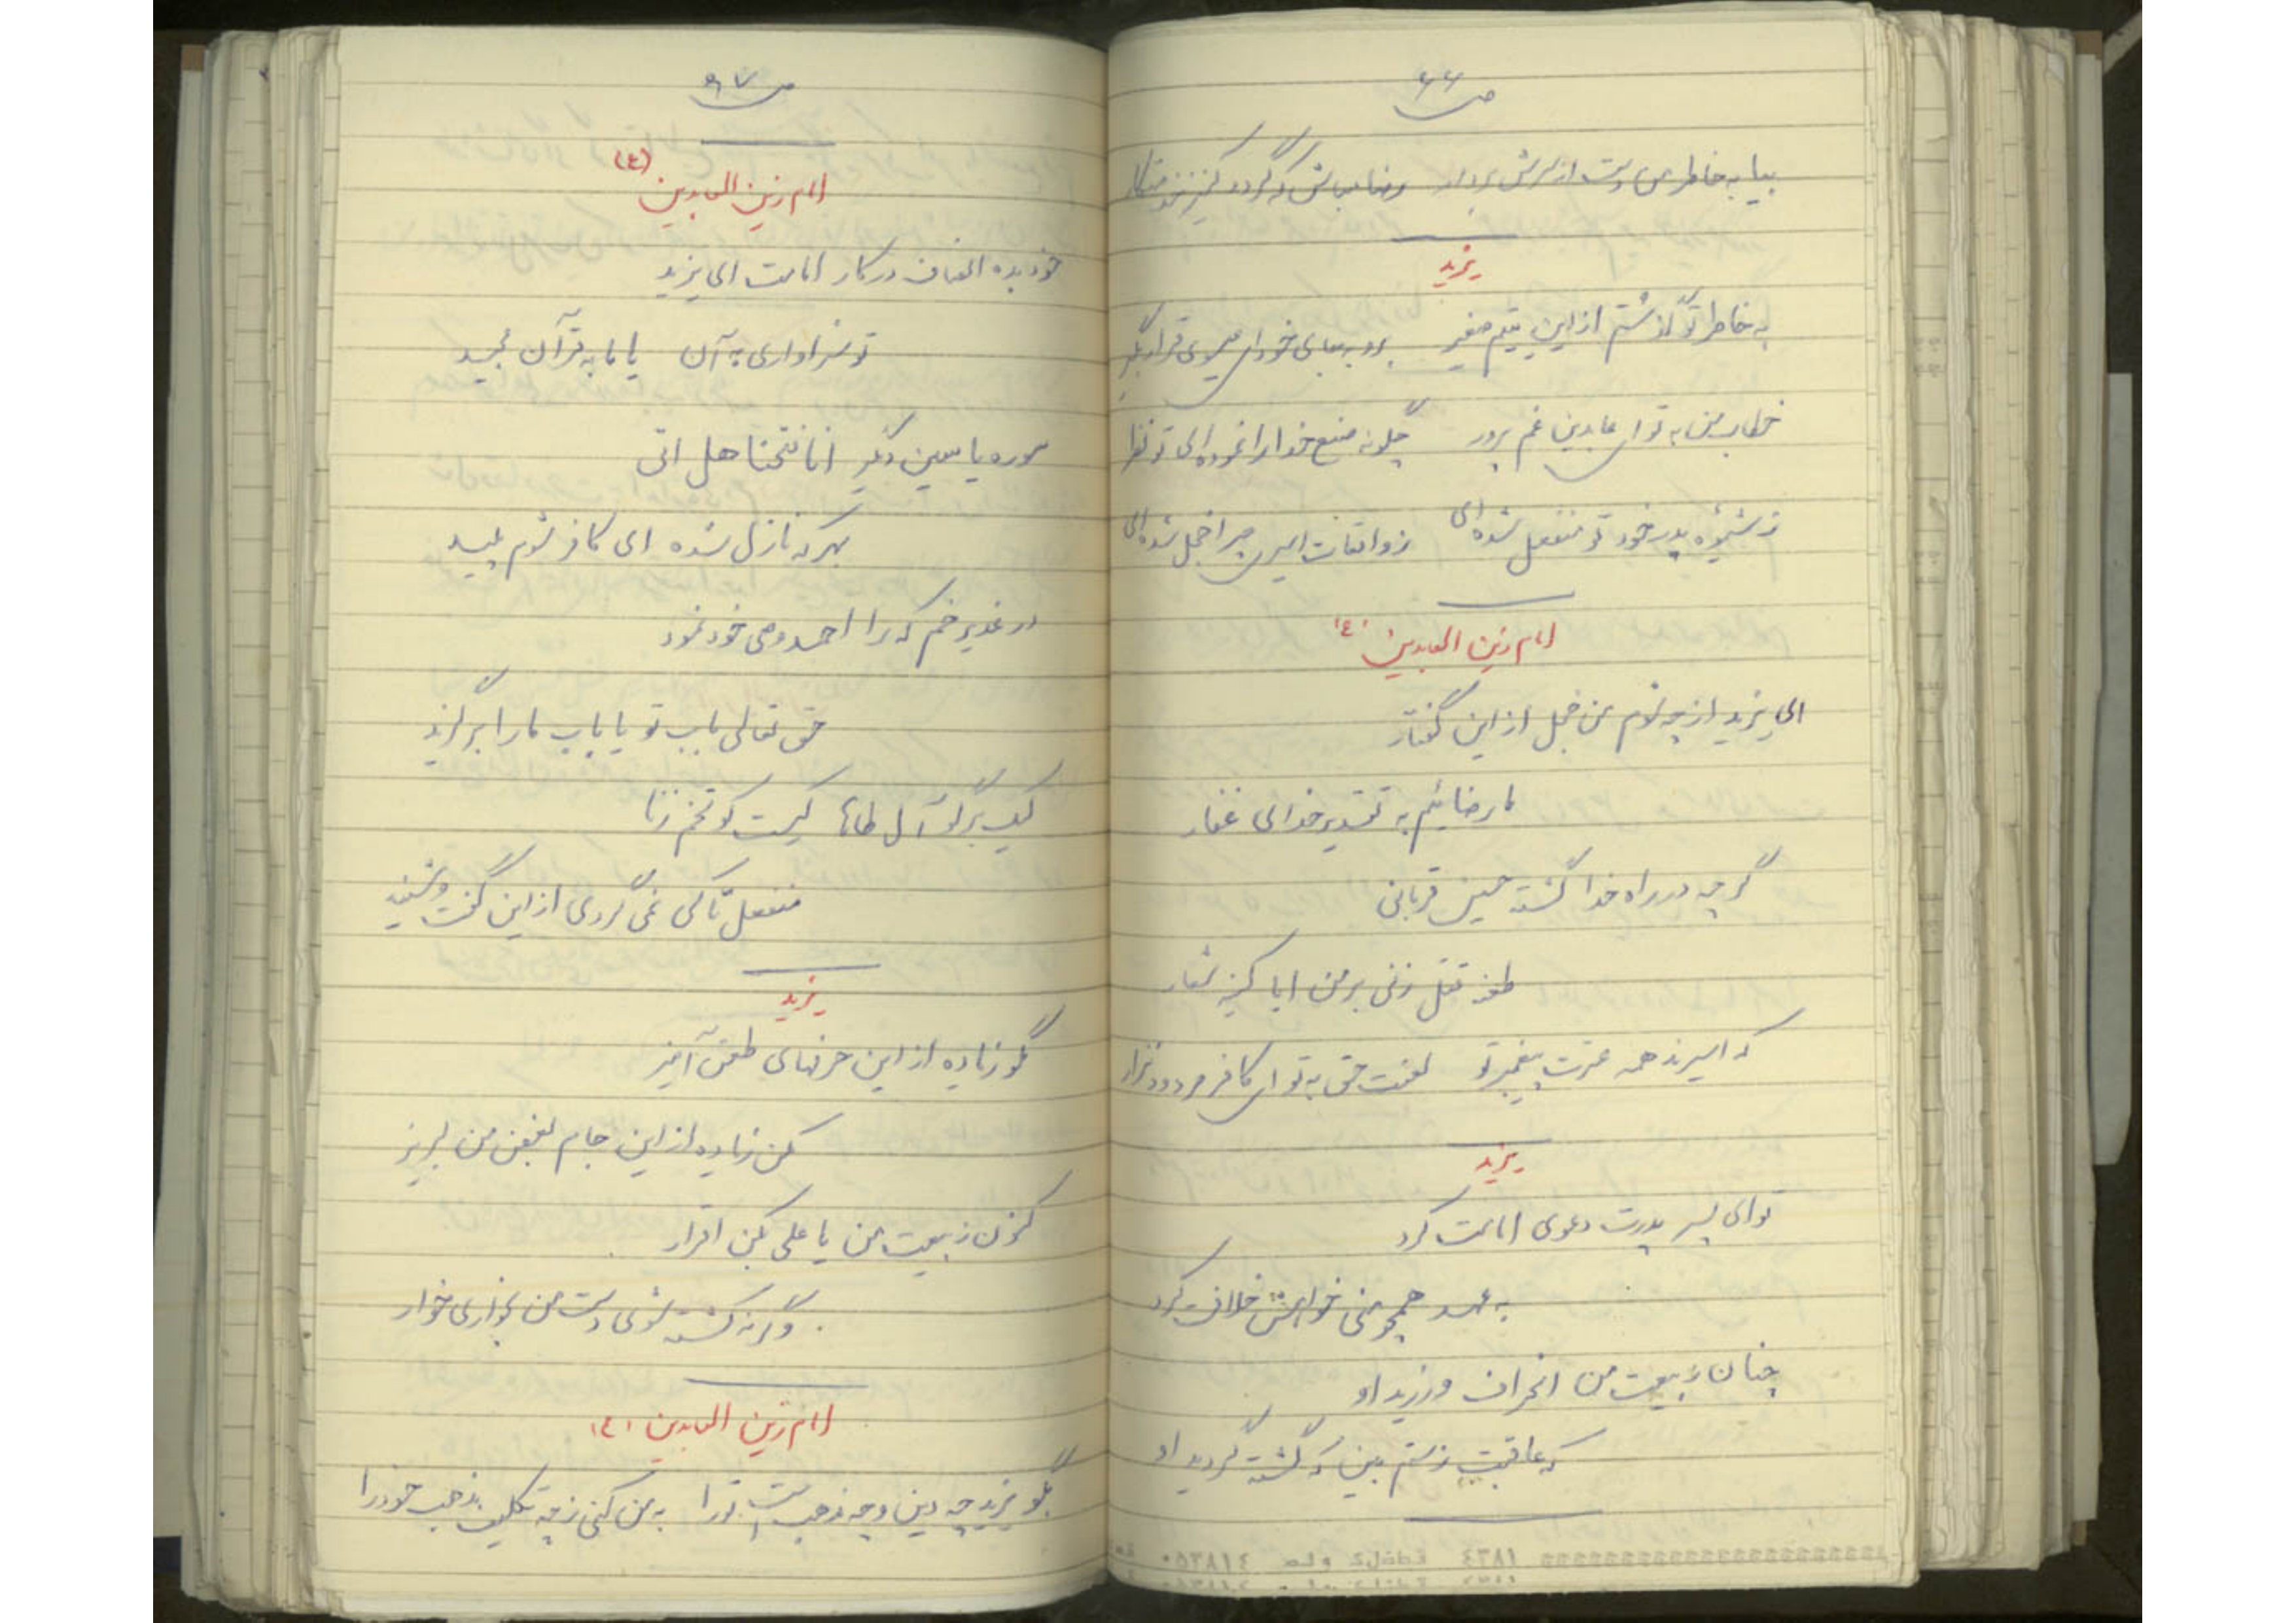 ص ۶۶
بیا به خاطر من دست از سرش بردار رضا مباش که گردد کنیز
یزید
به خاطر تو گذشتم از این یتیم صغیر برو به جای خود ای بی‌قرار بگیر
خطاب من به تو ای عابدین غم پرور چگونه صنع خدا را نموده‌ای تو نظر
ز شیوه پدر خود تو منفعل شده‌ای ز واقعات اسیری چرا خجل شده‌ای
امام زین العابدین (ع)
ای یزید از چه شوم من خجل از این گفتار
ما رضائیم به تقدیر خدای غفار
گرچه در راه خدا گشته حسین قربانی
طعنه قتل زنی بر من ایا کینه شعار
که اسیرند همه عترت پیغمبر تو لعنت حق به تو ای کافر مردود
یزید
تو ای پسر پدرت دعوی امامت کرد
به عهد همچو منی خواهش خلافت کرد
چنان ز بیعت من انحراف ورزید او
که عاقبت ز ستم بین که کشته گردید او
ص ۶۷
امام زین العابدین (ع)
خود بده انصاف در کار امامت ای یزید
تو سزاواری به آن یا ما به قرآن مجید
سوره یاسین دگر انا فتحنا هل اتی
بهر که نازل شده ای کافر شوم پلید
در غدیر خم که را احمد وصی خود نمود
حق تعالی باب تو یا باب ما را برگزید
کیست بر گو آل طاها کیست کو تخم زنا
منفعل تا کی نمی گردی از این گفت و شنید
یزید
مگو زیاده از این حرفهای طعن آمیز
مکن زیاده از این جام بغض من لبریز
کنون ز بیعت من یا علی بکن اقرار
وگرنه کشته شوی دست من بخواری خوار
امام زین العابدین (ع)
بگو یزید چه دین و چه مذهب است تو را به من کنی ز چه تکلیف مذهب خود را